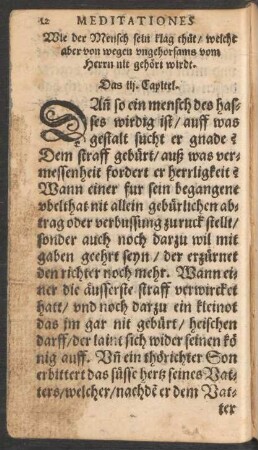 12 MEDITATIONES
Wie der Mensch sein klag thůt/ welcht
aber von wegen vngehorsams vom
Herrn nit gehört wirdt.
Das iij. Capitel.
DAñ so ein mensch des has-
ses wirdig ist/ auff was
gestalt sucht er gnade?
Dem straff gebürt/ auß was ver-
messenheit fordert er herrligkeit?
Wann einer fur sein begangene
vbelthat nit allein gebürlichen ab-
trag oder verbussung zuruck stellt/
sonder auch noch darzu wil mit
gaben geehrt seyn/ der erzürnet
den richter noch mehr. Wann ei-
ner die äusserste straff verwircket
hatt/ vnd noch darzu ein kleinot
das jm gar nit gebürt/ heischen
darff/ der laint sich wider seinen kö
nig auff. Vñ ein thörichter Son
erbittert das süsse hertz seines Vat-
ters/welcher/nachdē er dem Vat-
ter